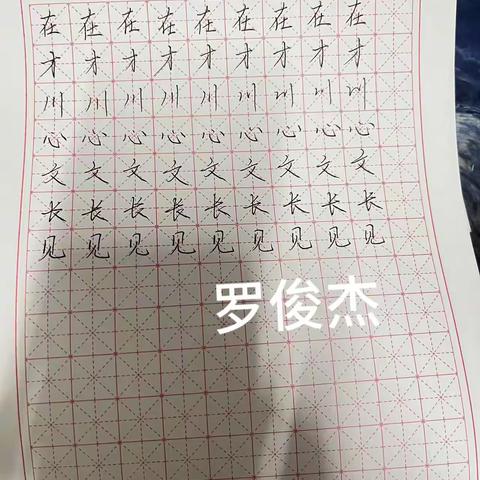 在在在在在在在在在
才才才才才才才才才
川川川川川川川川川
心心心心心心心心心
文文文文文文文文文
长长长长长长长长长
见见见见见见见见见
罗俊杰